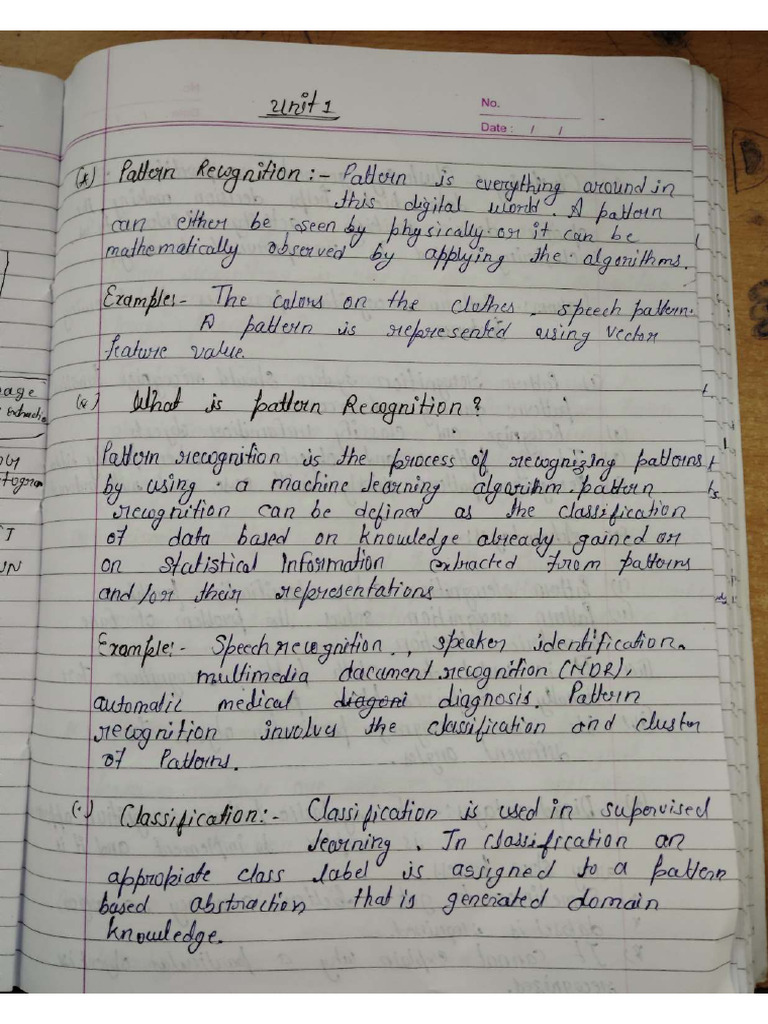 Unit 1
No.
Date : / /
(*) Pattern Recognition :- Pattern is everything around in
this digital world. A pattern
can either be seen by physically or it can be
mathematically observed by applying the algorithms.
Examples:- The colors on the clothes, speech pattern.
A pattern is represented using vector
feature value.
What is pattern Recognition?
Pattern recognition is the process of recognizing patterns
by using a machine learning algorithm. pattern
recognition can be defined as the classification
of data based on knowledge already gained or
on statistical Information extracted from patterns
and/or their representations
Example:- Speech recognition, speaker identification.
multimedia dacament recognition (MDR),
automatic medical diagoni diagnosis. Pattern
recognition involves the classification and cluster
of Patterns.
(.) Classification:- Classification is used in supervised
learning. In classification an
appropiate class label is assigned to a pattern
based abstraction that is generated domain
knowledge.